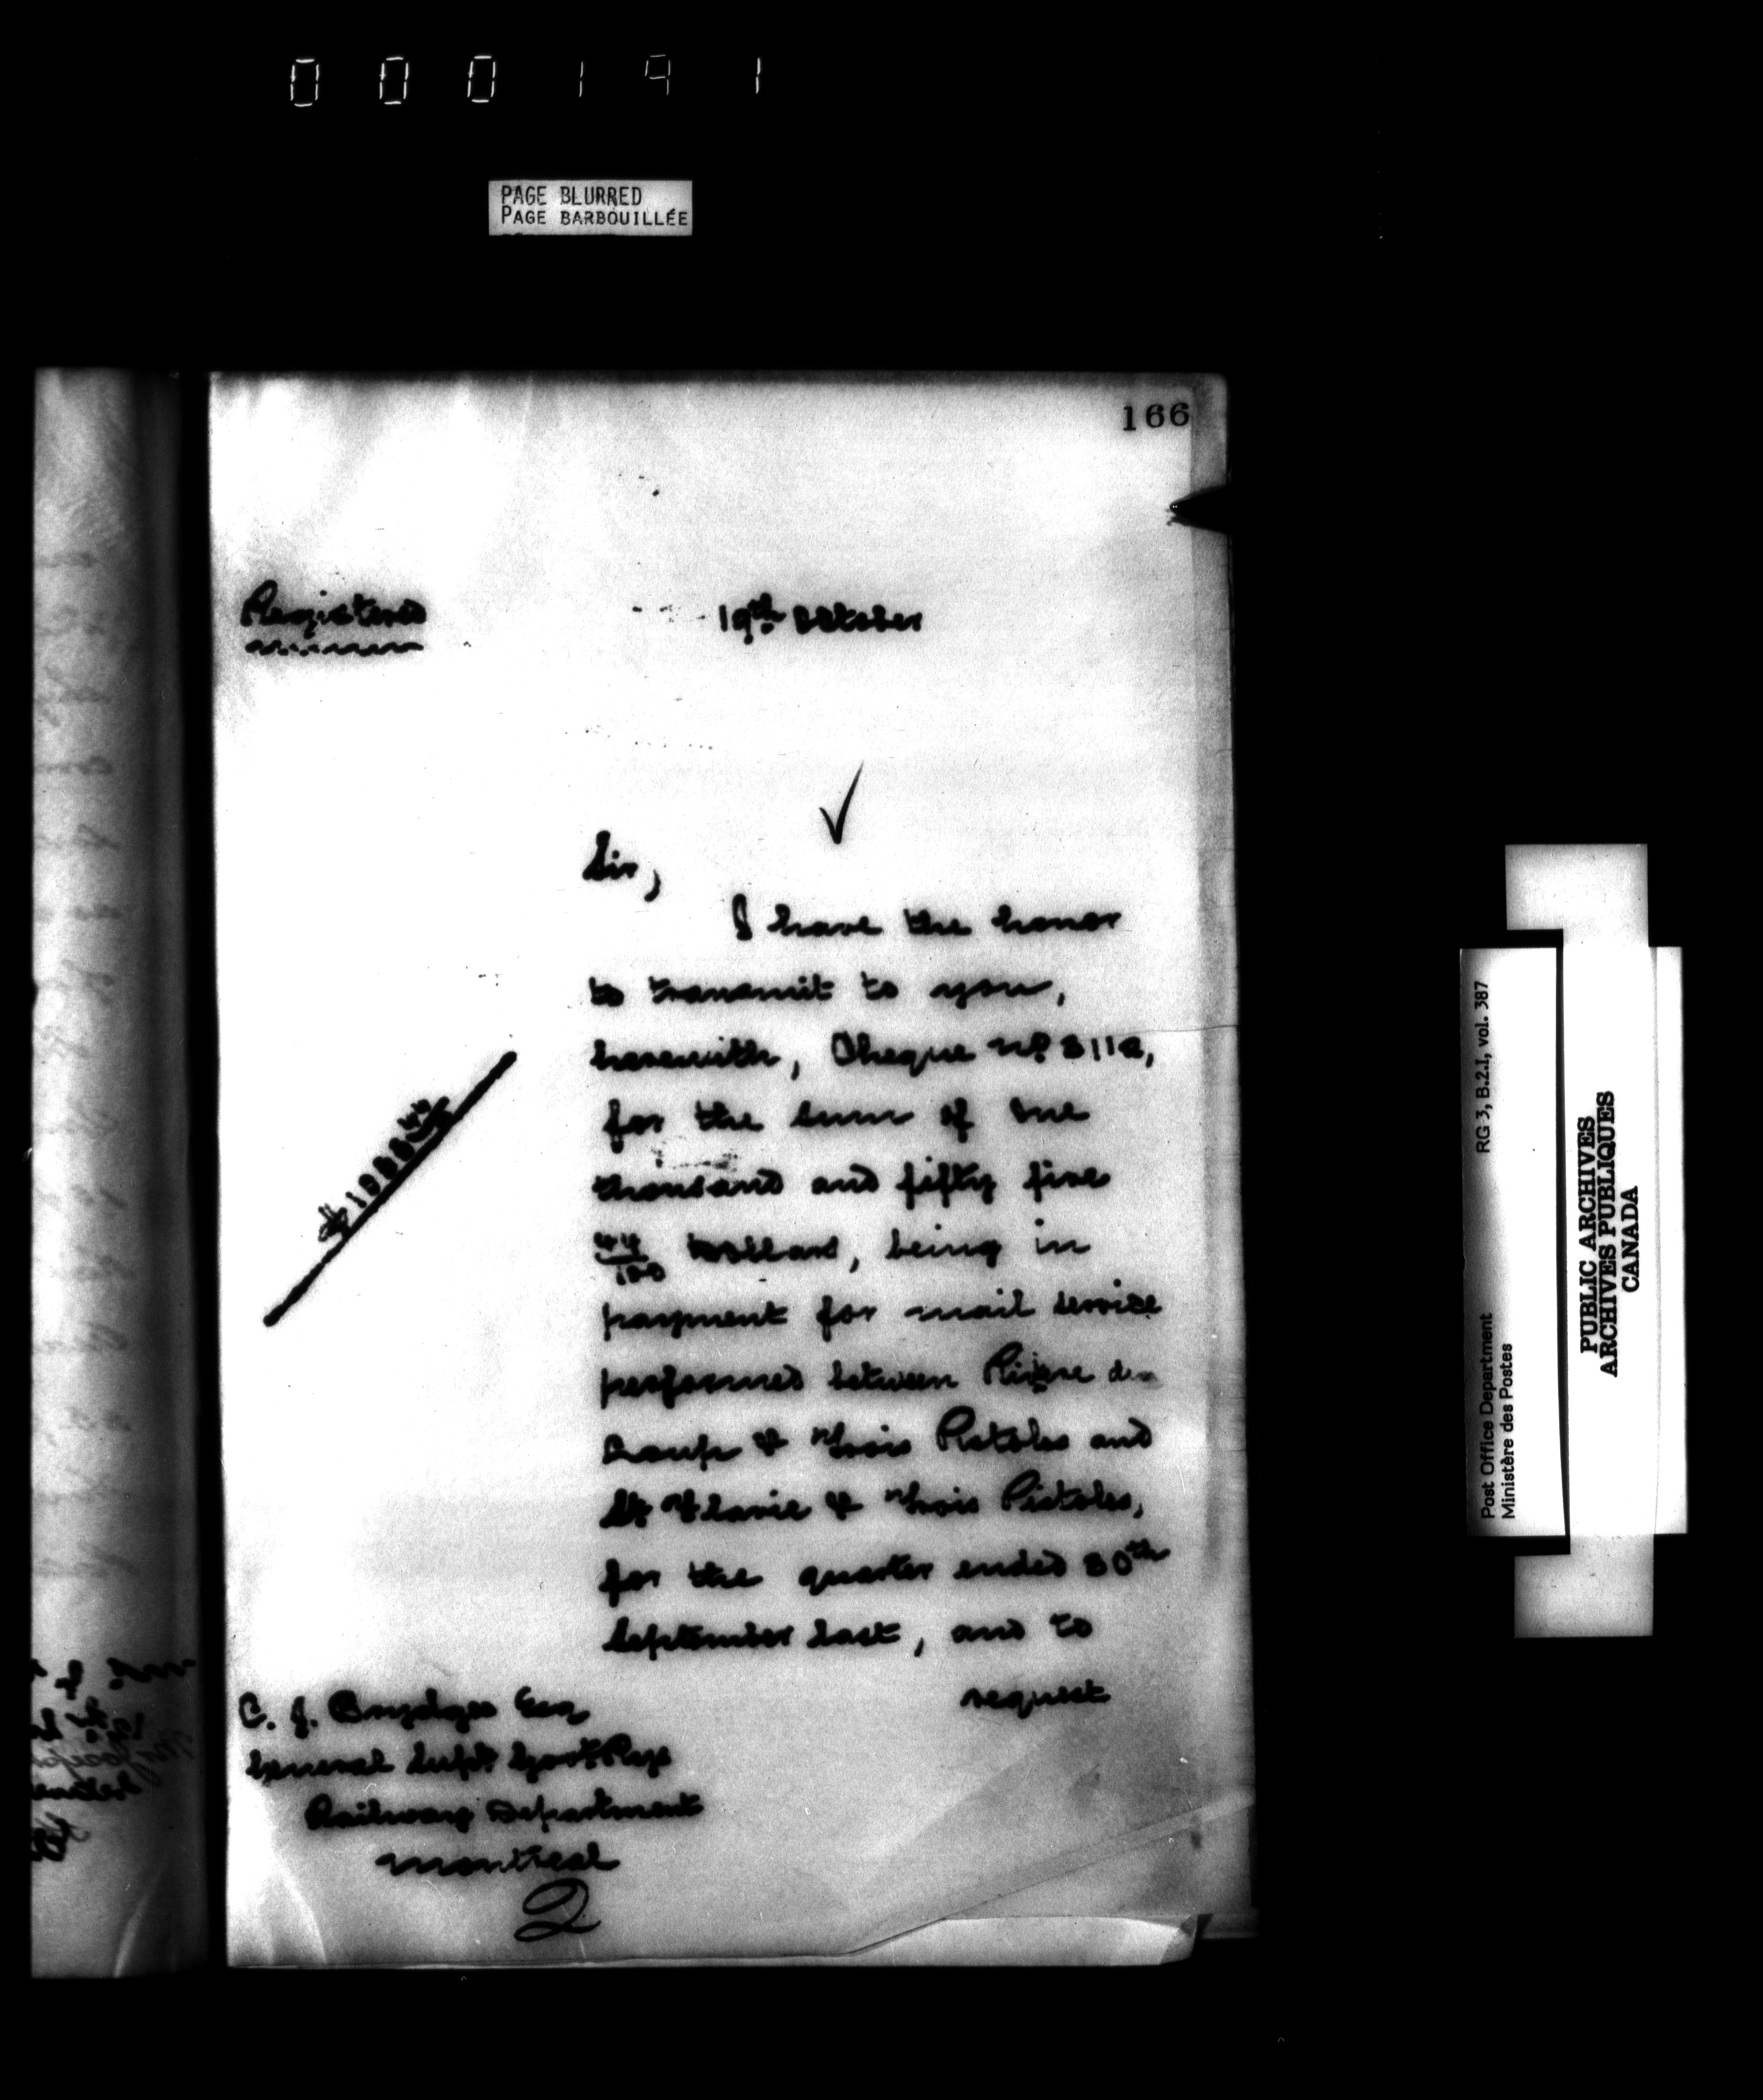 000191
PAGE BLURRED
PAGE BARBOUILLÉE
166
Registered
19th October
Sir,
I have the honor
to transmit to you,
herewith, Cheque No
for the sum of One
thousand and fifty five
44/100 Dollars, being in
payment for mail service
performed between Riviere du
Loup & Trois Pistoles and
St. Flavie & Trois Pistoles,
for the quarter ended 30th
September last, and to
request
C. J. Brydges Esq
General Supt. Govt. Rys
Railway Department
Montreal
2
RG 3, B.2.I, vol. 387
Post Office Department
Ministère des Postes
PUBLIC ARCHIVES
ARCHIVES PUBLIQUES
CANADA